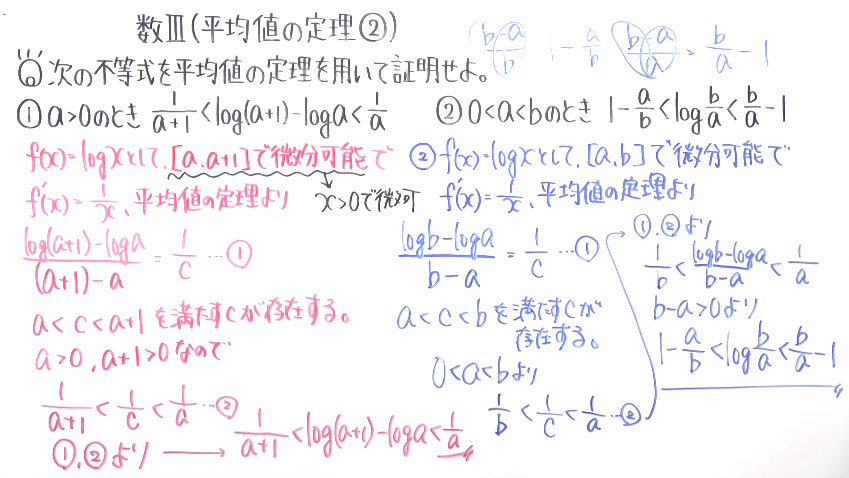 数Ⅲ(平均値の定理②)
(b-a)/b 1-a/b (b-a)/a > b/a-1
次の不等式を平均値の定理を用いて証明せよ。
① a>0のとき 1/(a+1)<log(a+1)-loga<1/a
② 0<a<bのとき 1-a/b<log b/a<b/a-1
f(x)=logxとして、[a,a+1]で微分可能で
x>0で微可
f'(x)=1/x、平均値の定理より
(log(a+1)-loga)/((a+1)-a)=1/c …①
a<c<a+1を満たすcが存在する。
a>0, a+1>0なので
1/(a+1)<1/c<1/a …②
①,②より → 1/(a+1)<log(a+1)-loga<1/a
② f(x)=logxとして、[a,b]で微分可能で
f'(x)=1/x、平均値の定理より
(logb-loga)/(b-a)=1/c …①
a<c<bを満たすcが
存在する。
0<a<bより
1/b<1/c<1/a …②
①,②より
1/b<(logb-loga)/(b-a)<1/a
b-a>0より
1-a/b<log b/a<b/a-1